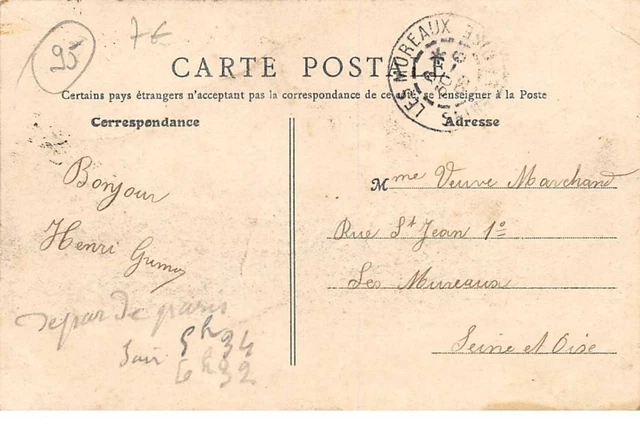 25
7€
CARTE POSTALE
Certains pays étrangers n'acceptant pas la correspondance de ce côté, se renseigner à la Poste
LES MUREAUX
Correspondance
Bonjour
Henri
depar de paris
Soir 5h34
6h32
Adresse
Mme Veuve Marchand
Rue St Jean 1º
Les Mureaux
Seine et Oise